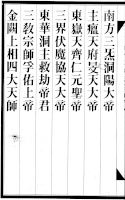 南方三炁洞陽大帝
主瘟天府天大帝
東嶽天齊仁元聖帝
三界伏魔協天大帝
東華洞主救劫帝君
三教宗師孚佑上帝
金闕上相四大天師